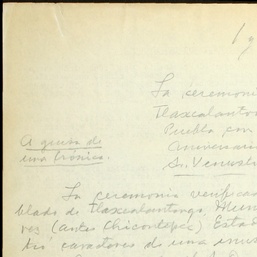 19
La ceremoni
Tlaxcalanton
Puebla con
Aniversari
Sn. Venusti
A guisa de
una crónica.
La ceremonia verificad
blado de Tlaxcalantongo,
res (antes Chicontepec) Estad
tió caracteres de una inus